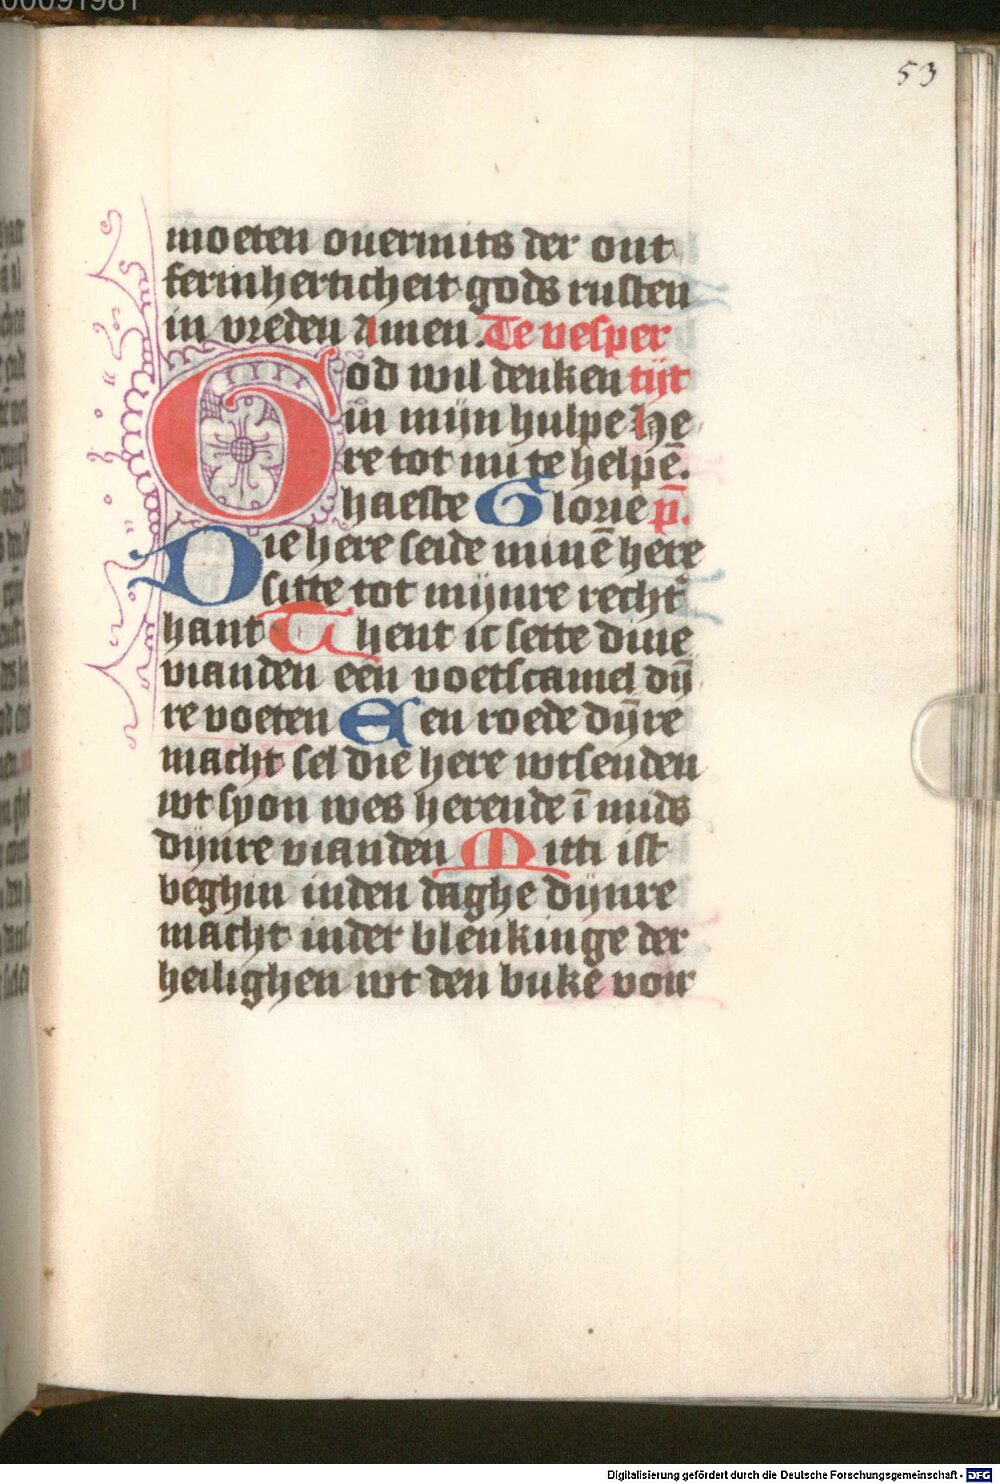 00091981
53
moeten ouermits der ont
fermherticheit gods rusten
in vreden Amen. Te vesper
God wil denken tijt
in mijn hulpe He
re tot mi te helpē.
haeste Glorie p̄.
Die here seide minē here
sitte tot mijnre recht̕
hant Thent ic sette dine
vianden een voetscamel dij̄
re voeten Een roede dijre
macht sel die here wtsenden
wt syon wes herende ī mids
dijnre vianden Mitti ist
beghin inden daghe dijnre
macht inder blenkinge der
heilighen wt den buke voir
Digitalisierung gefördert durch die Deutsche Forschungsgemeinschaft - DFG